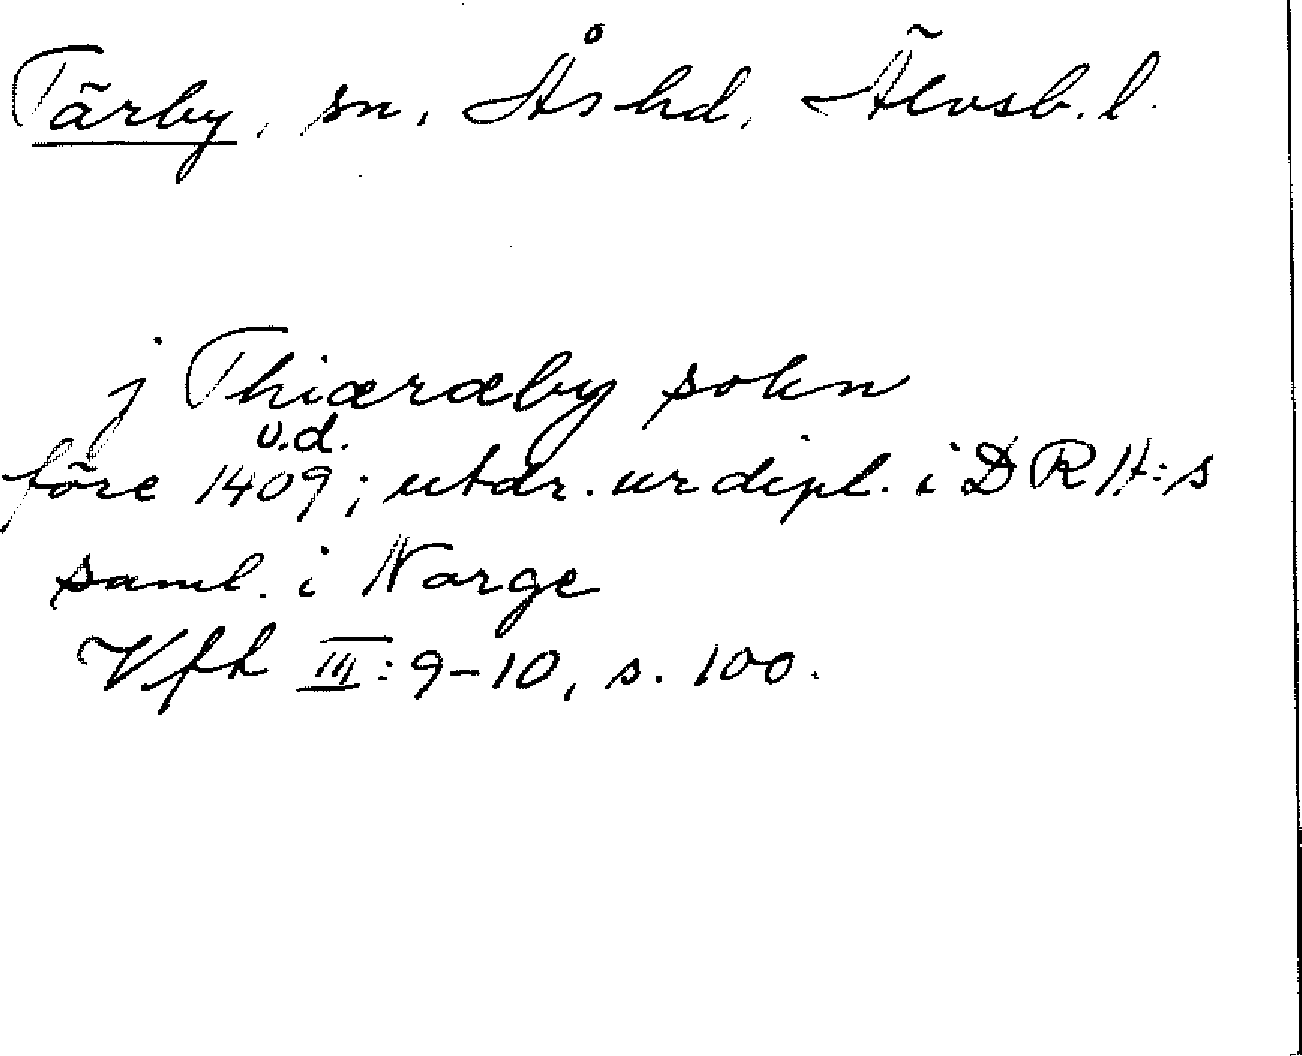 Tärby, sn, Ås hd, Älvsb. l.
j Thiæræby sokn
u.d.
före 1409; utdr. ur dipl. i DRH:s
saml. i Norge
Vfh III: 9-10, s. 100.